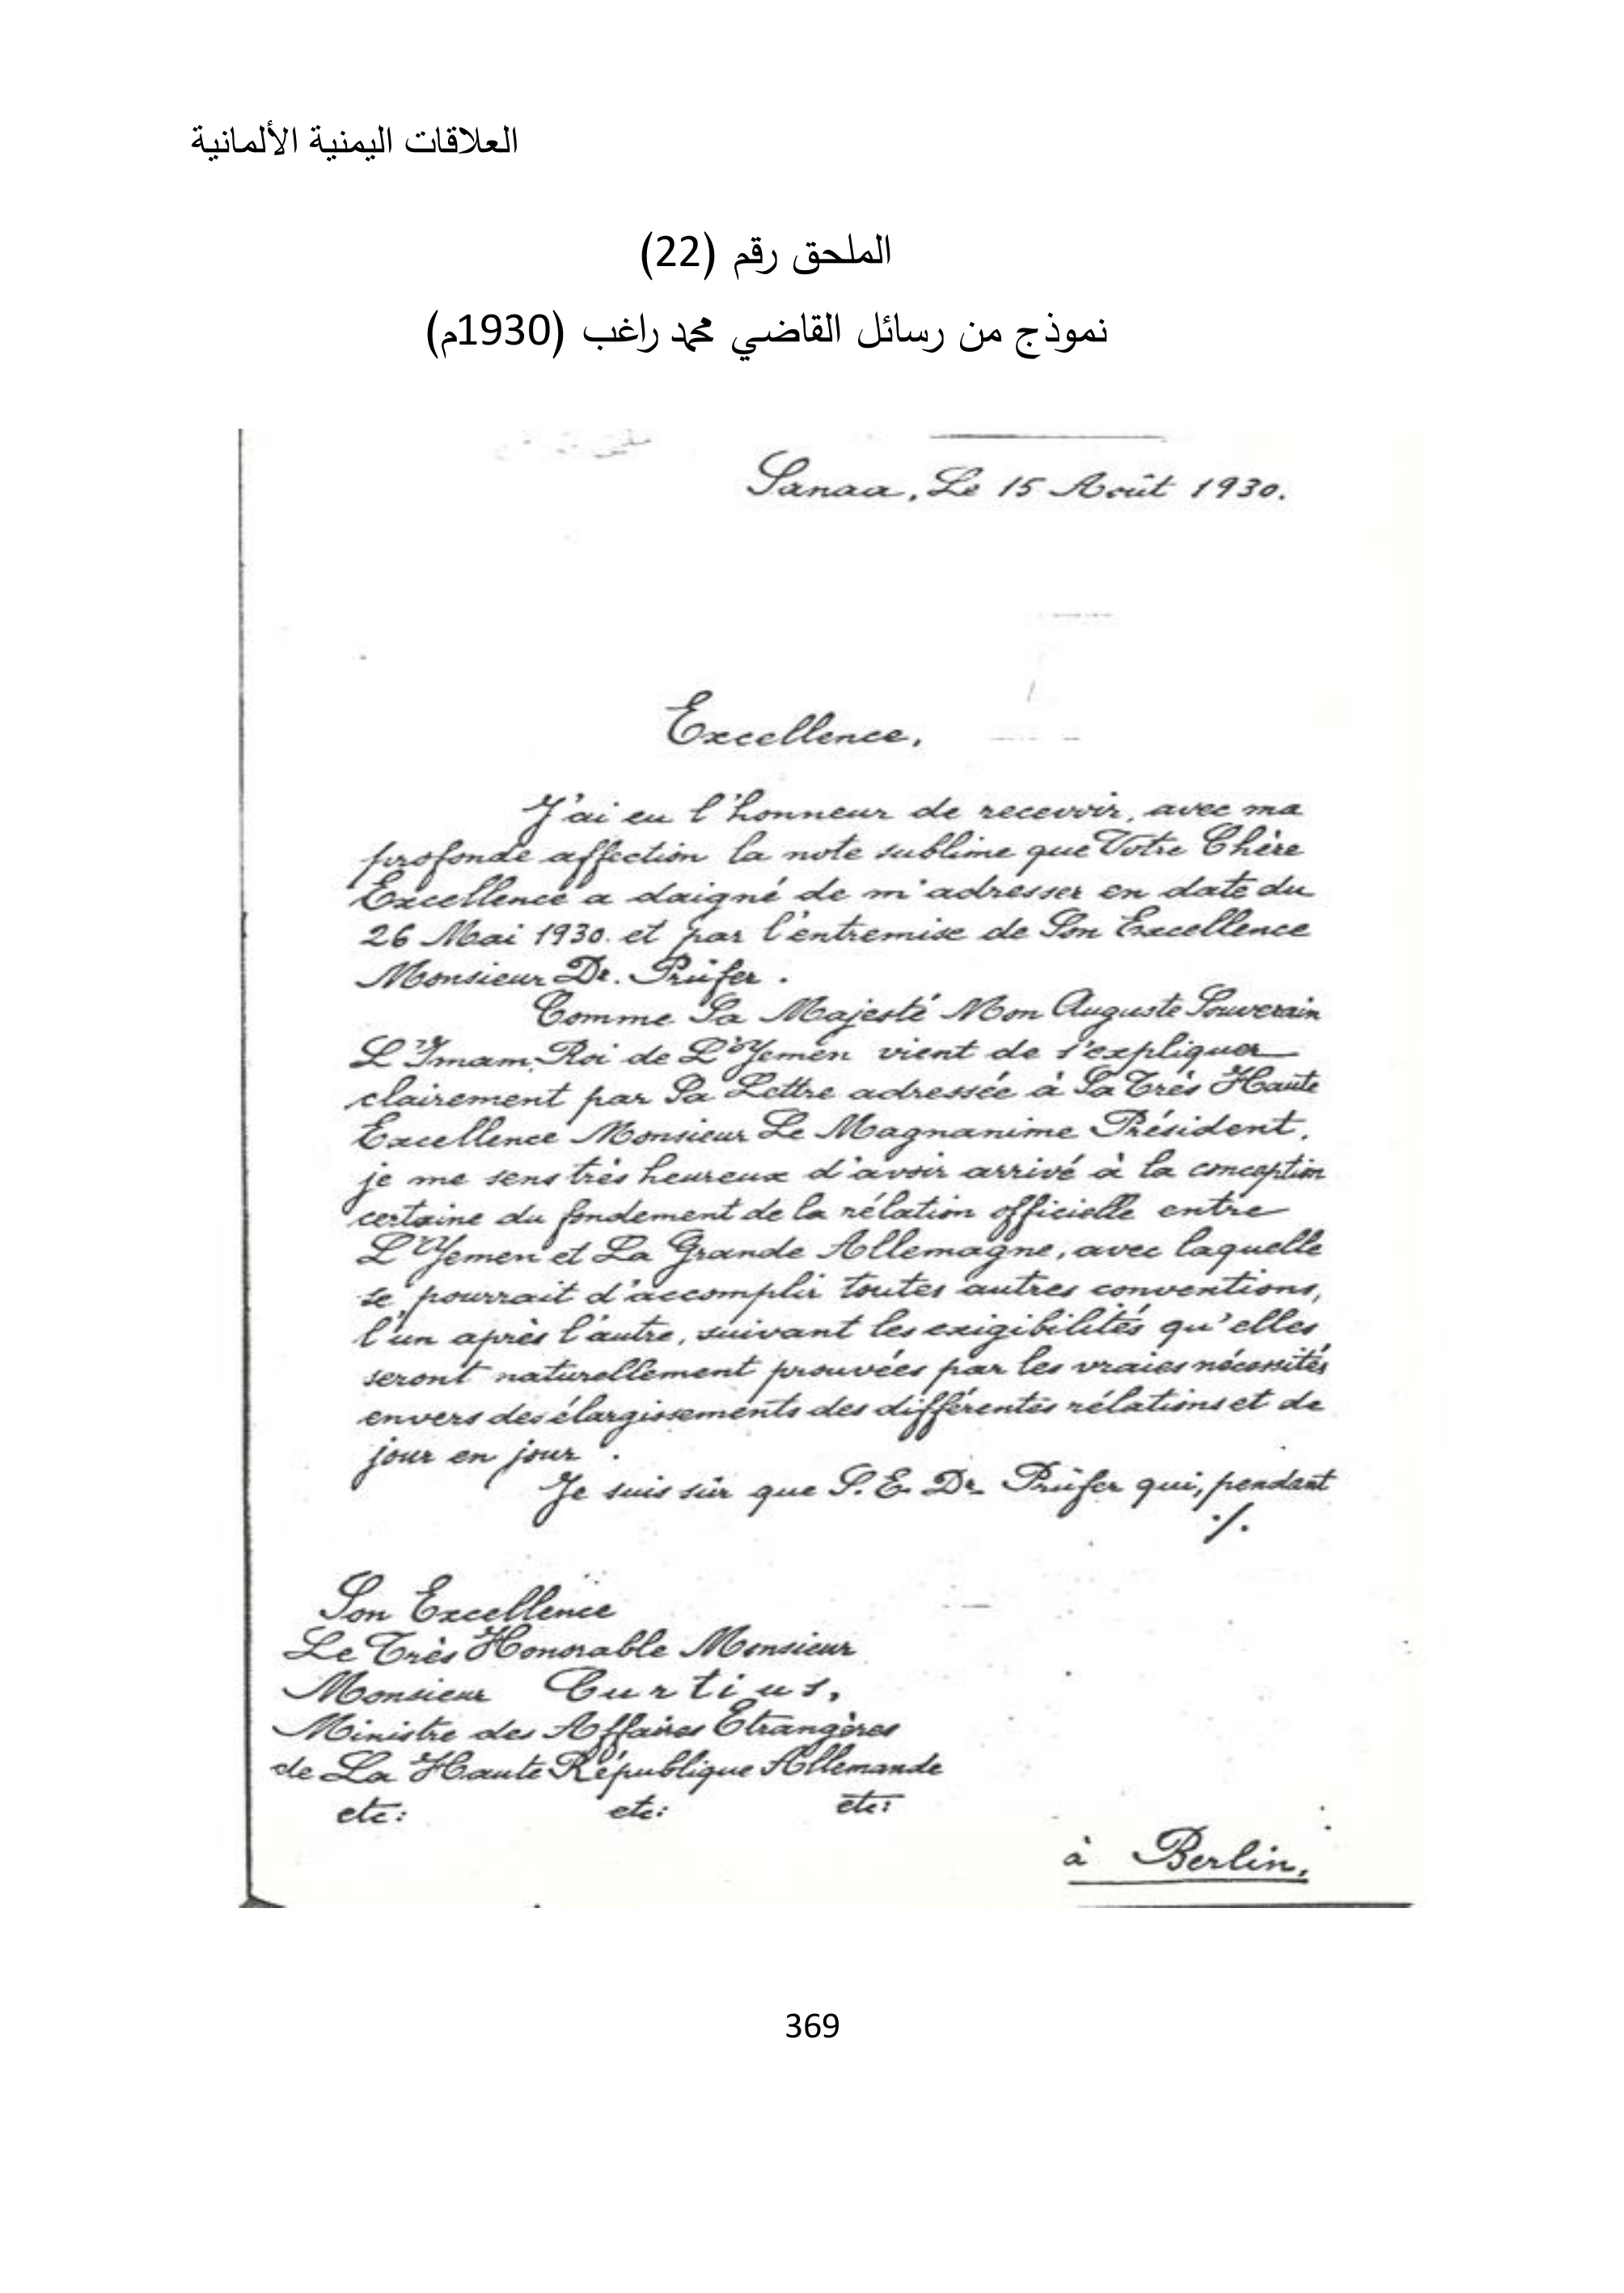 العلاقات اليمنية الألمانية
الملحق رقم (22)
نموذج من رسائل القاضي محمد راغب (1930م)
Sanaa, Le 15 Août 1930.
Excellence,
J'ai eu l'honneur de recevoir, avec ma
profonde affection la note sublime que Votre Chère
Excellence a daigné de m'adresser en date du
26 Mai 1930. et par l'entremise de Son Excellence
Monsieur Dr. Prüfer.
Comme Sa Majesté Mon Auguste Souverain
L'Imam-Roi de L'Yemen vient de s'expliquer
clairement par Sa Lettre adressée à Sa Très Haute
Excellence Monsieur Le Magnanime Président,
je me sens très heureux d'avoir arrivé à la conception
certaine du fondement de la rélation officielle entre
L'Yemen et La Grande Allemagne, avec laquelle
se pourrait d'accomplir toutes autres conventions,
l'un après l'autre, suivant les exigibilités qu'elles
seront naturellement prouvées par les vraies nécessités
envers des élargissements des différentes rélations et de
jour en jour.
Je suis sûr que S. E. Dr. Prüfer qui, pendant
./.
Son Excellence
Le Très Honorable Monsieur
Monsieur Curtius,
Ministre des Affaires Etrangères
de La Haute République Allemande
etc: etc: etc:
à Berlin,
369